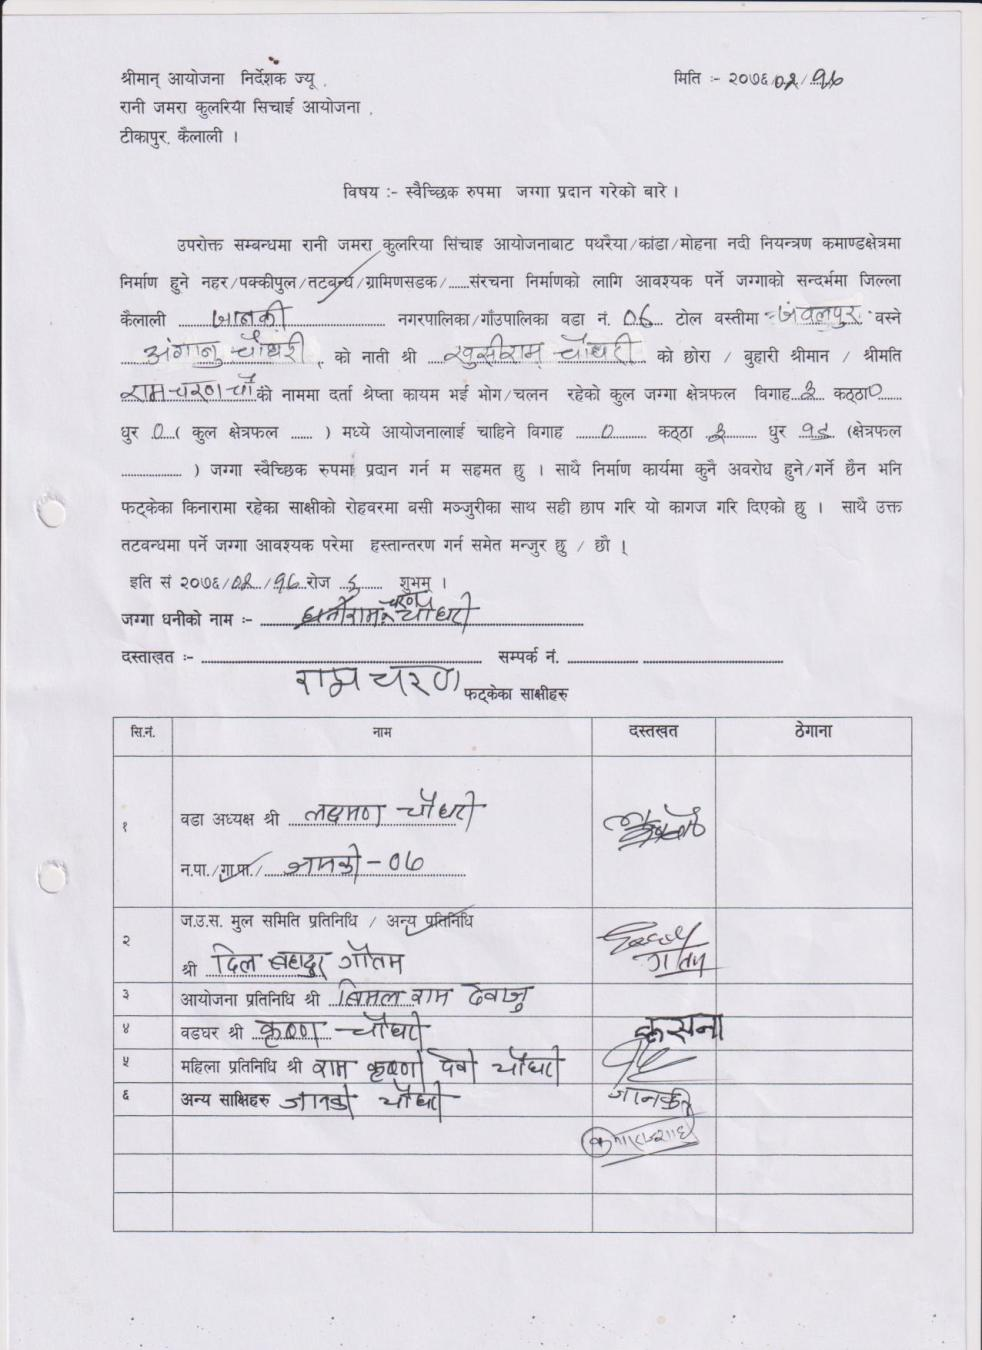 श्रीमान् आयोजना निर्देशक ज्यू, मिति :- २०७६/०२/१६
रानी जमरा कुलरिया सिचाई आयोजना,
टीकापुर, कैलाली ।
विषय :- स्वैच्छिक रुपमा जग्गा प्रदान गरेको बारे ।
उपरोक्त सम्बन्धमा रानी जमरा कुलरिया सिंचाइ आयोजनाबाट पथरैया/कांडा/मोहना नदी नियन्त्रण कमाण्डक्षेत्रमा
निर्माण हुने नहर/पक्कीपुल/तटबन्ध/ग्रामिणसडक/......संरचना निर्माणको लागि आवश्यक पर्ने जग्गाको सन्दर्भमा जिल्ला
कैलाली जानकी नगरपालिका/गाँउपालिका वडा नं. ०७ टोल वस्तीमा जंवलपुर वस्ने
अंगानु चौधरी को नाती श्री खुसीराम चौधरी को छोरा / बुहारी श्रीमान / श्रीमति
रामचरण चौ को नाममा दर्ता श्रेष्ता कायम भई भोग/चलन रहेको कुल जग्गा क्षेत्रफल विगाह २ कठ्ठा ०
धुर ० ( कुल क्षेत्रफल ...... ) मध्ये आयोजनालाई चाहिने विगाह ० कठ्ठा २ धुर (क्षेत्रफल
.................. ) जग्गा स्वैच्छिक रुपमा प्रदान गर्न म सहमत छु । साथै निर्माण कार्यमा कुनै अवरोध हुने/गर्ने छैन भनि
फट्केका किनारामा रहेका साक्षीको रोहवरमा वसी मञ्जुरीका साथ सही छाप गरि यो कागज गरि दिएको छु । साथै उक्त
तटवन्धमा पर्ने जग्गा आवश्यक परेमा हस्तान्तरण गर्न समेत मन्जुर छु / छौ ।
इति सं २०७६/०२/१६ रोज ५ शुभम् ।
जग्गा धनीको नाम :- चरण चौधरी
दस्ताखत :- सम्पर्क नं.
राम चरण फट्केका साक्षीहरु
सि.नं. नाम दस्तखत ठेगाना
१ वडा अध्यक्ष श्री लक्ष्मण चौधरी
न.पा./गा.पा./ जानकी - ०७
२ ज.उ.स. मुल समिति प्रतिनिधि / अन्य प्रतिनिधि
श्री दिल बहादुर गौतम गौतम
३ आयोजना प्रतिनिधि श्री बिमल राम देवाजु
४ वडघर श्री कृष्ण चौधरी कृसना
५ महिला प्रतिनिधि श्री राम कृष्णी देवी चौधरी
६ अन्य साक्षिहरु जानकी चौधरी जानकी